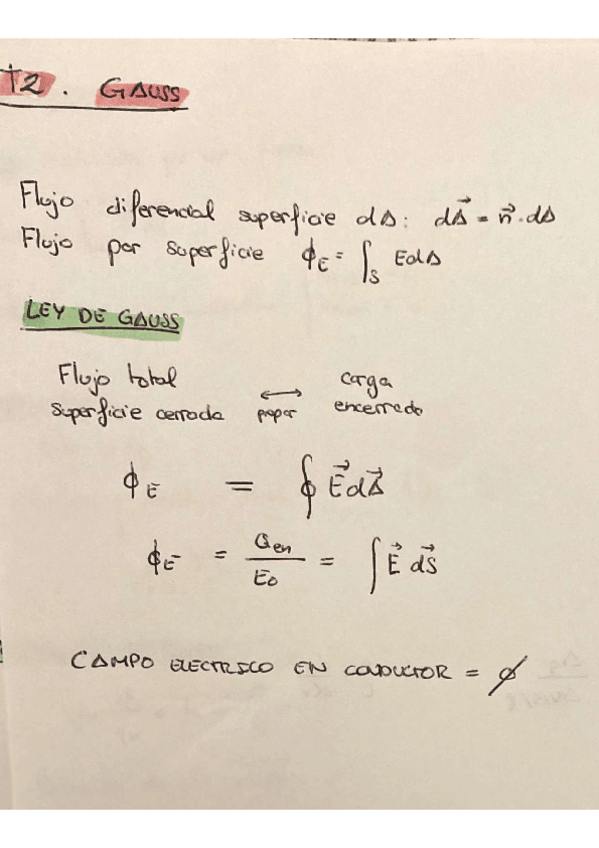 T2. GAUSS
Flujo diferencial superficie dA: dA⃗ = n⃗ · dA
Flujo por superficie ϕE = ∫S EdA
LEY DE GAUSS
Flujo total ⟷ carga
superficie cerrada propor encerrada
ϕE = ∮ E⃗dA⃗
ϕE = Qen / E0 = ∫ E⃗ dS⃗
CAMPO ELECTRICO EN CONDUCTOR = ∅